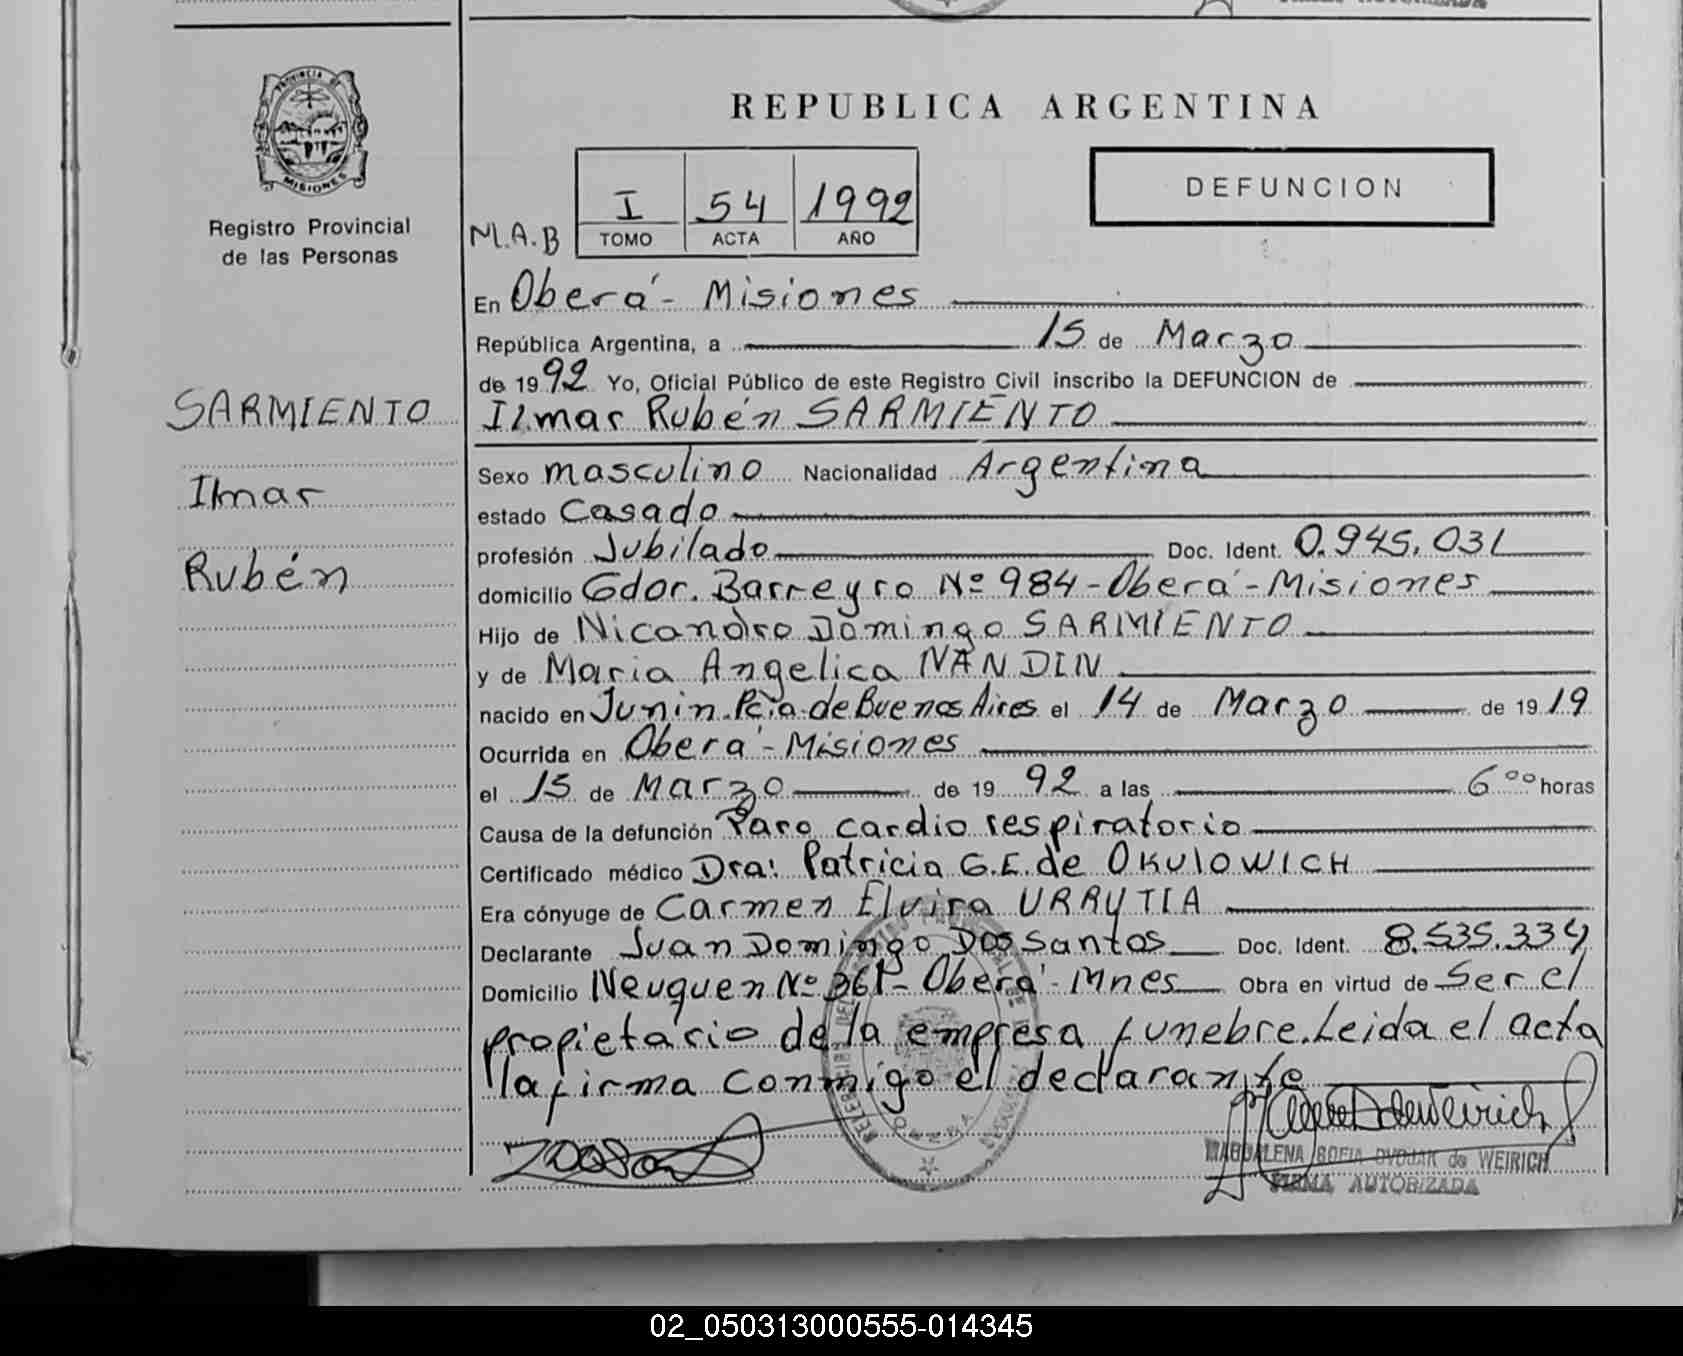 REPUBLICA ARGENTINA
PROVINCIA DE
MISIONES
Registro Provincial
de las Personas
M.A.B
I 54 1992
TOMO ACTA AÑO
DEFUNCION
SARMIENTO
Ilmar
Rubén
En Oberá - Misiones
República Argentina, a 15 de Marzo
de 1992 Yo, Oficial Público de este Registro Civil inscribo la DEFUNCION de
Ilmar Rubén SARMIENTO
Sexo masculino Nacionalidad Argentina
estado Casado
profesión Jubilado Doc. Ident. 0.945.031
domicilio Gdor. Barreyro Nº 984 - Oberá - Misiones
Hijo de Nicandro Domingo SARMIENTO
y de Maria Angelica NANDIN
nacido en Junin. Pcia. de Buenos Aires el 14 de Marzo de 1919
Ocurrida en Oberá - Misiones
el 15 de Marzo de 1992 a las 6 00 horas
Causa de la defunción Paro cardio respiratorio
Certificado médico Dra: Patricia G.E. de OKULOWICH
Era cónyuge de Carmen Elvira URRUTIA
Declarante Juan Domingo Dos Santos Doc. Ident. 8.535.334
Domicilio Neuquen Nº 361 - Oberá - Mnes Obra en virtud de Ser el
propietario de la empresa funebre. Leida el acta
la firma conmigo el declarante
MAGDALENA SOFIA DVOJAK de WEIRICH
FIRMA AUTORIZADA
02_050313000555-014345